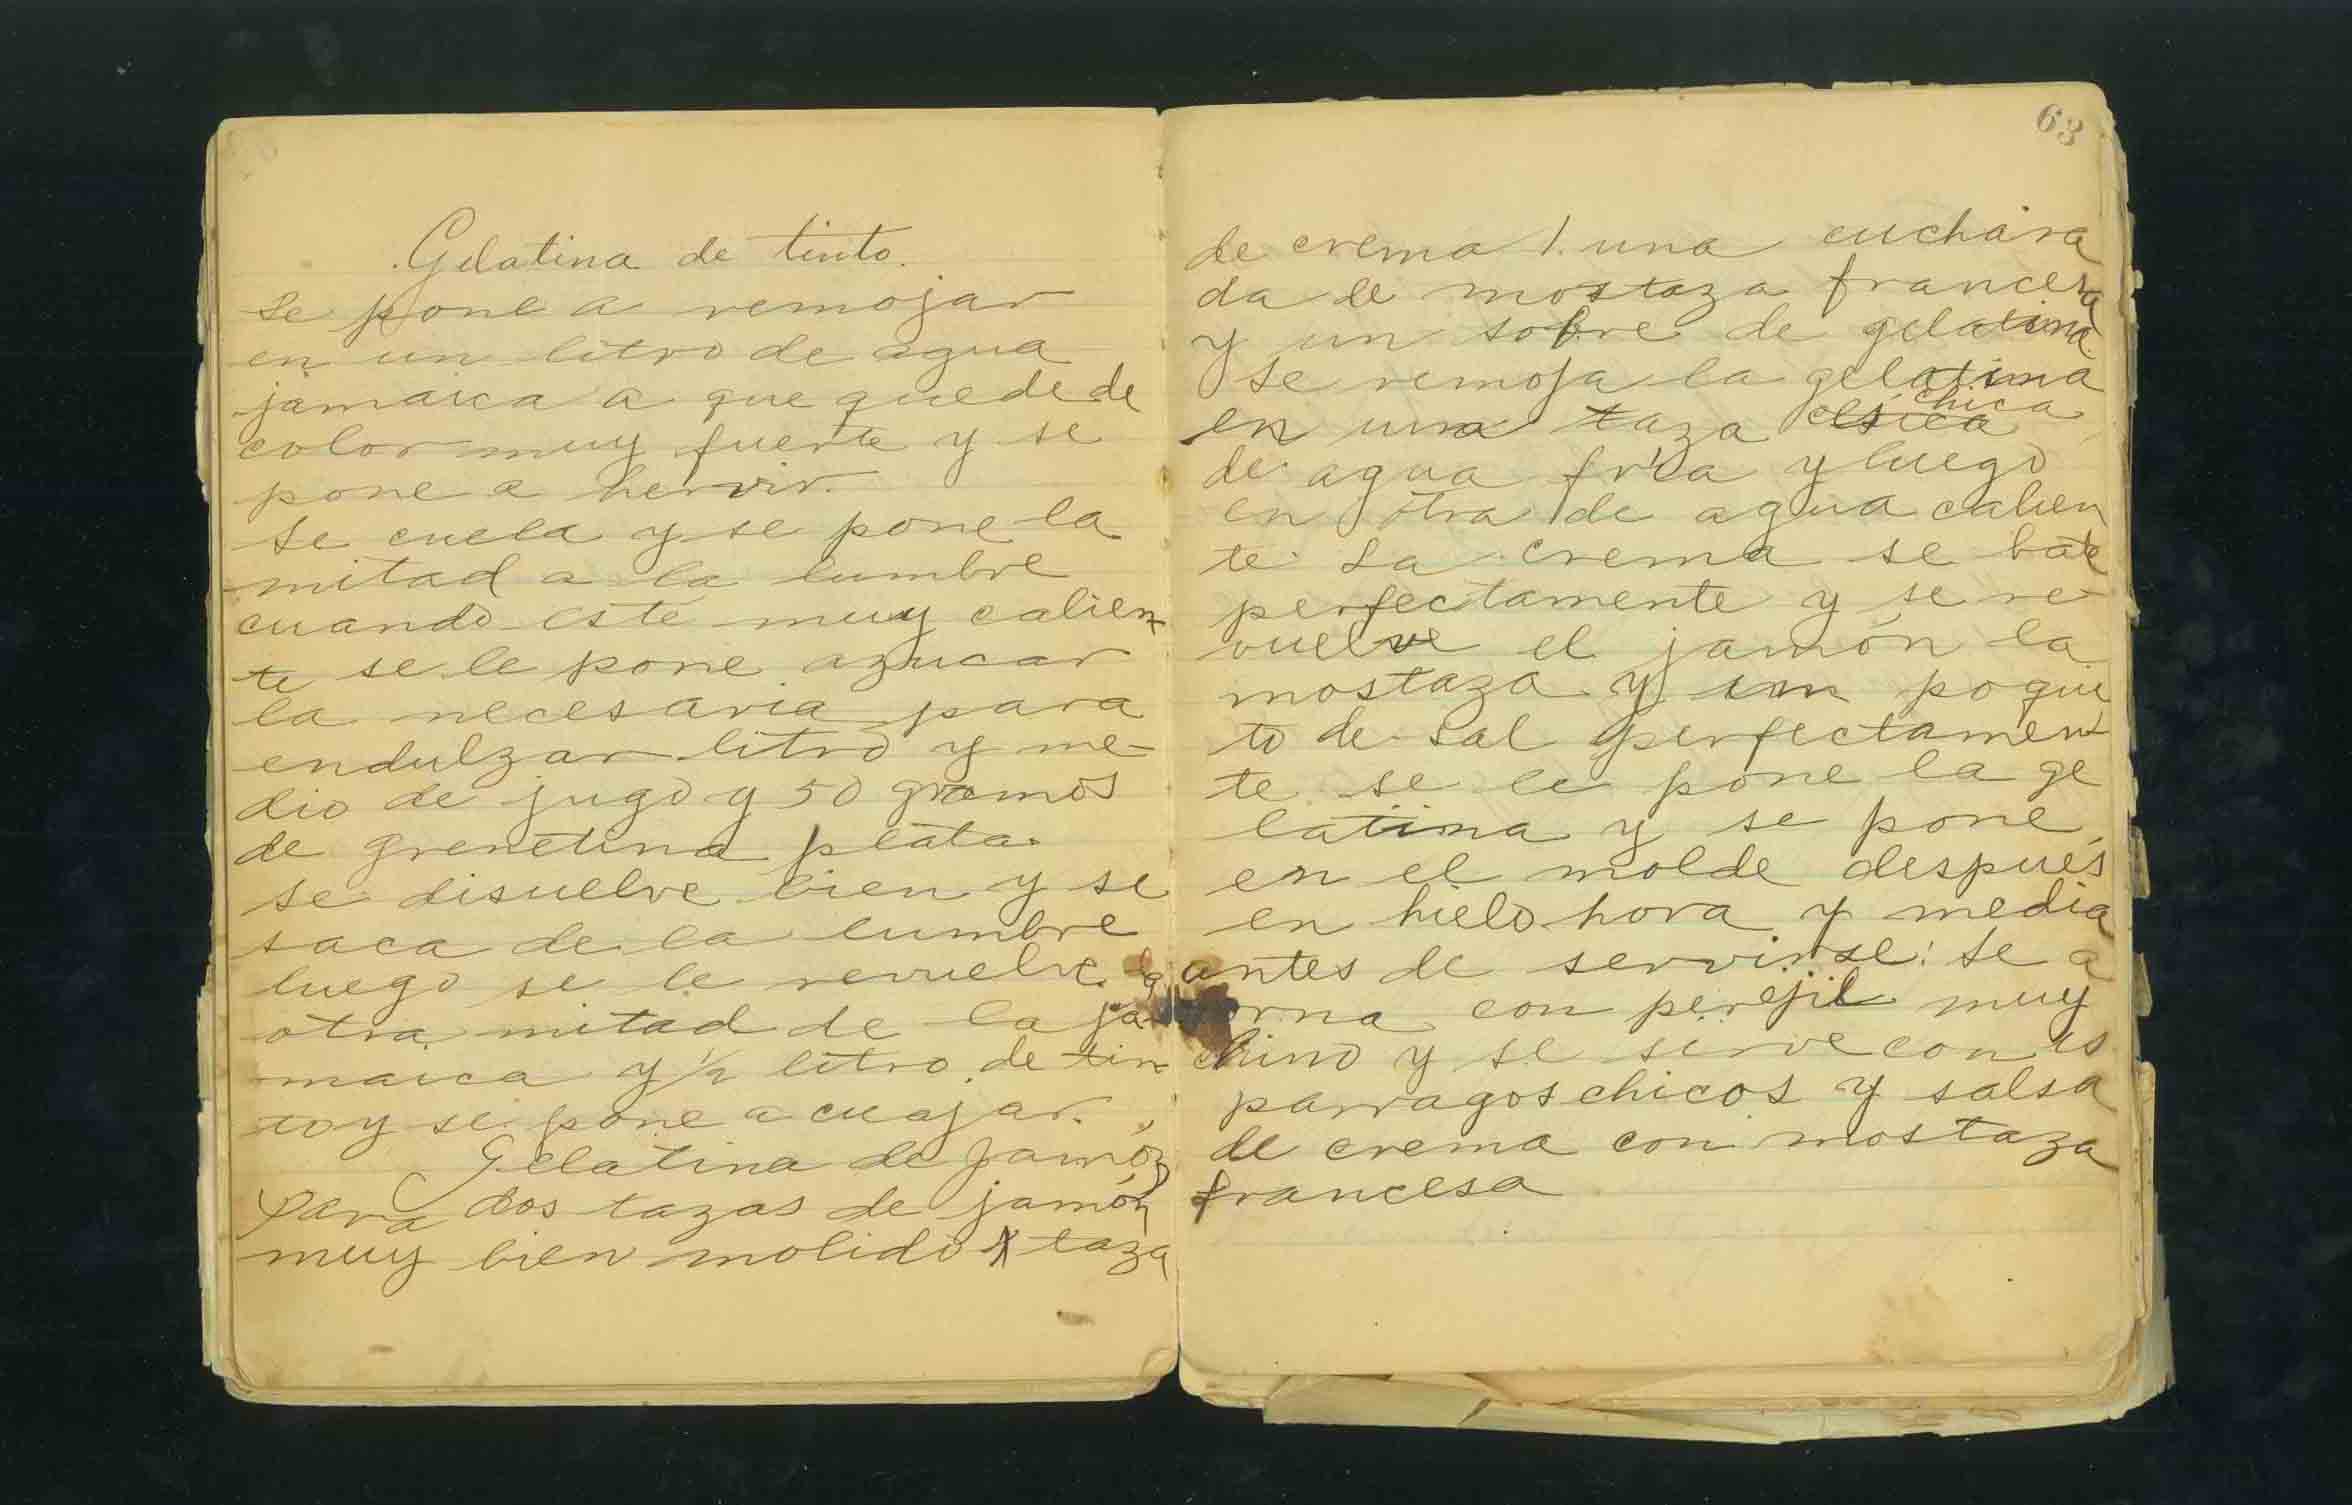 Gelatina de tinto.
Se pone a remojar
en un litro de agua
jamaica a que quede de
color muy fuerte y se
pone a hervir.
Se cuela y se pone la
mitad a la lumbre
cuando esté muy calien
te se le pone azucar
la necesaria para
endulzar litro y me-
dio de jugo y 50 gramos
de grenetina plata.
se disuelve bien y se
saca de la lumbre
luego se le revuelve la
otra mitad de la ja
maica y 1/2 litro de tin
to y se pone a cuajar.
Gelatina de Jamón
Para dos tazas de jamón
muy bien molido 1 taza
63
de crema 1. una cuchara
da de mostaza francesa
y un sobre de gelatina.
Se remoja la gelatina
chica
en una taza
de agua fría y luego
en otra de agua calien
te. La crema se bate
perfectamente y se re-
vuelve el jamón la
mostaza y un poqui
to de sal perfectamen
te se le pone la ge
latina y se pone
en el molde después
en hielo hora y media
antes de servirse. Se a
orna con perejil muy
chino y se sirve con es
parragos chicos y salsa
de crema con mostaza
francesa